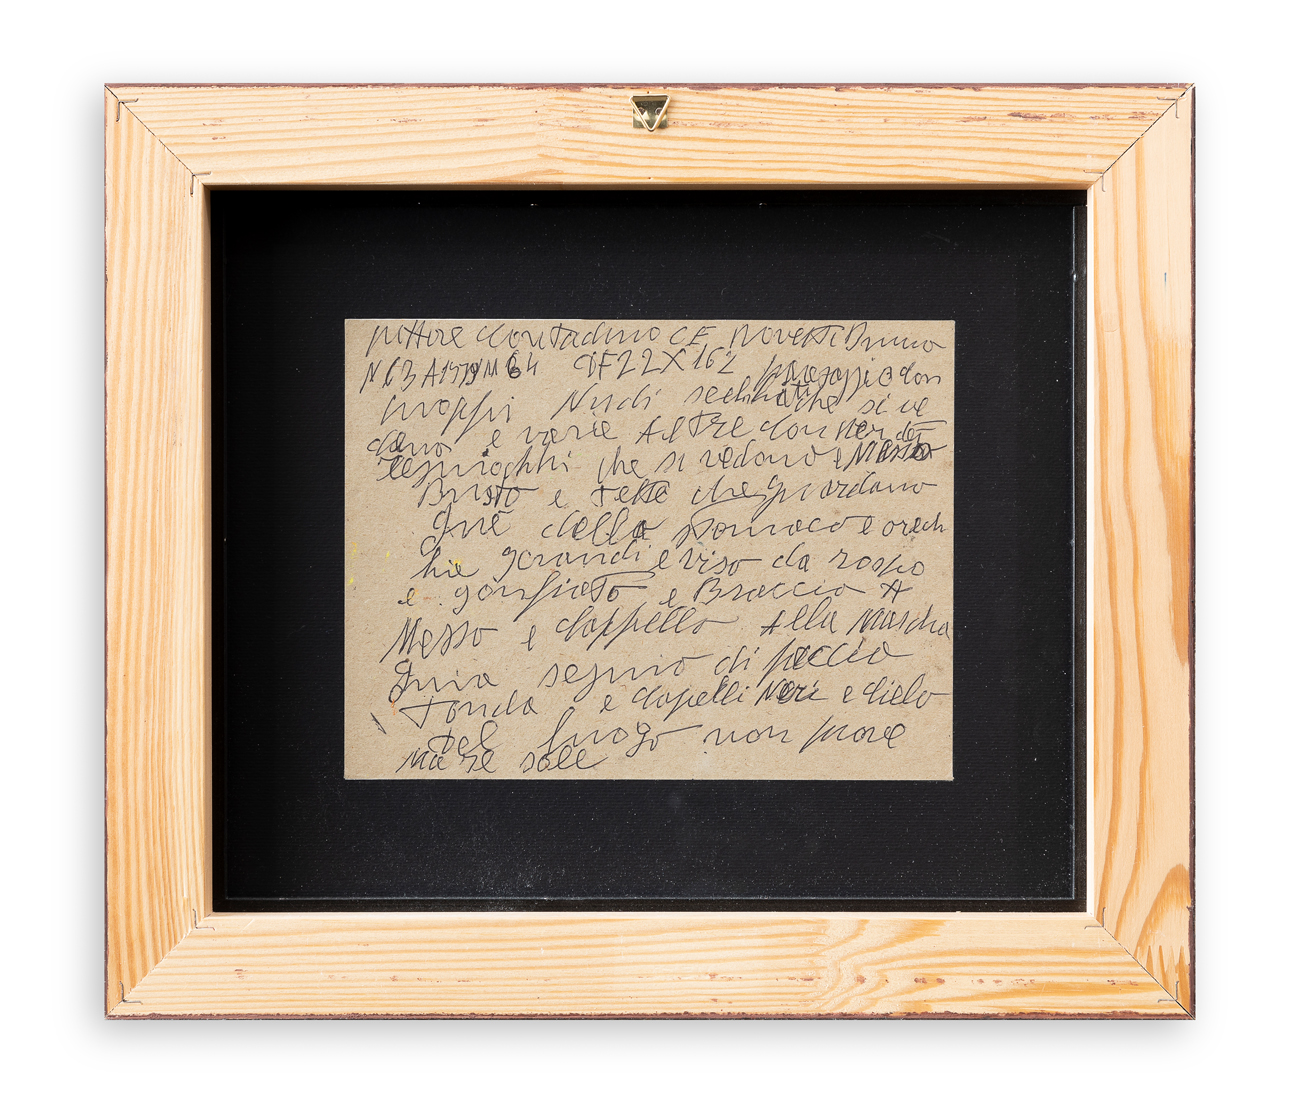 pittore contadino CF Rovesti Bruno
N 63 A1979 M 64 DF22X162 paesaggio con
pioppi Nudi secchi che si ve
dano e varie Altre con Neri det
respioghhi che si vedano e Messo
Busto e teste che guardano
Giu della stomaco e orech
hie grandi e viso da rospo
e gonfiato e Braccio A
Messo e cappello Alla Mascha
Guia segnio di faccia
Tonda e capelli Neri e cielo
del luogo non piove
Ma se sole